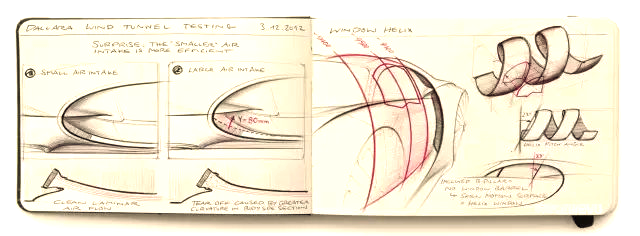 DALLARA WIND TUNNEL TESTING 3.12.2012
SURPRISE: THE "SMALLER" AIR
INTAKE IS MORE EFFICIENT
1 SMALL AIR INTAKE
2 LARGE AIR INTAKE
Y=80mm
CLEAN LAMINAR
AIR FLOW
TEAR OFF CAUSED BY GREATER
CURVATURE IN BODYSIDE SECTION
WINDOW HELIX
HELIX PITCH ANGLE
NO WINDOW BARREL
HELIX WINDOW